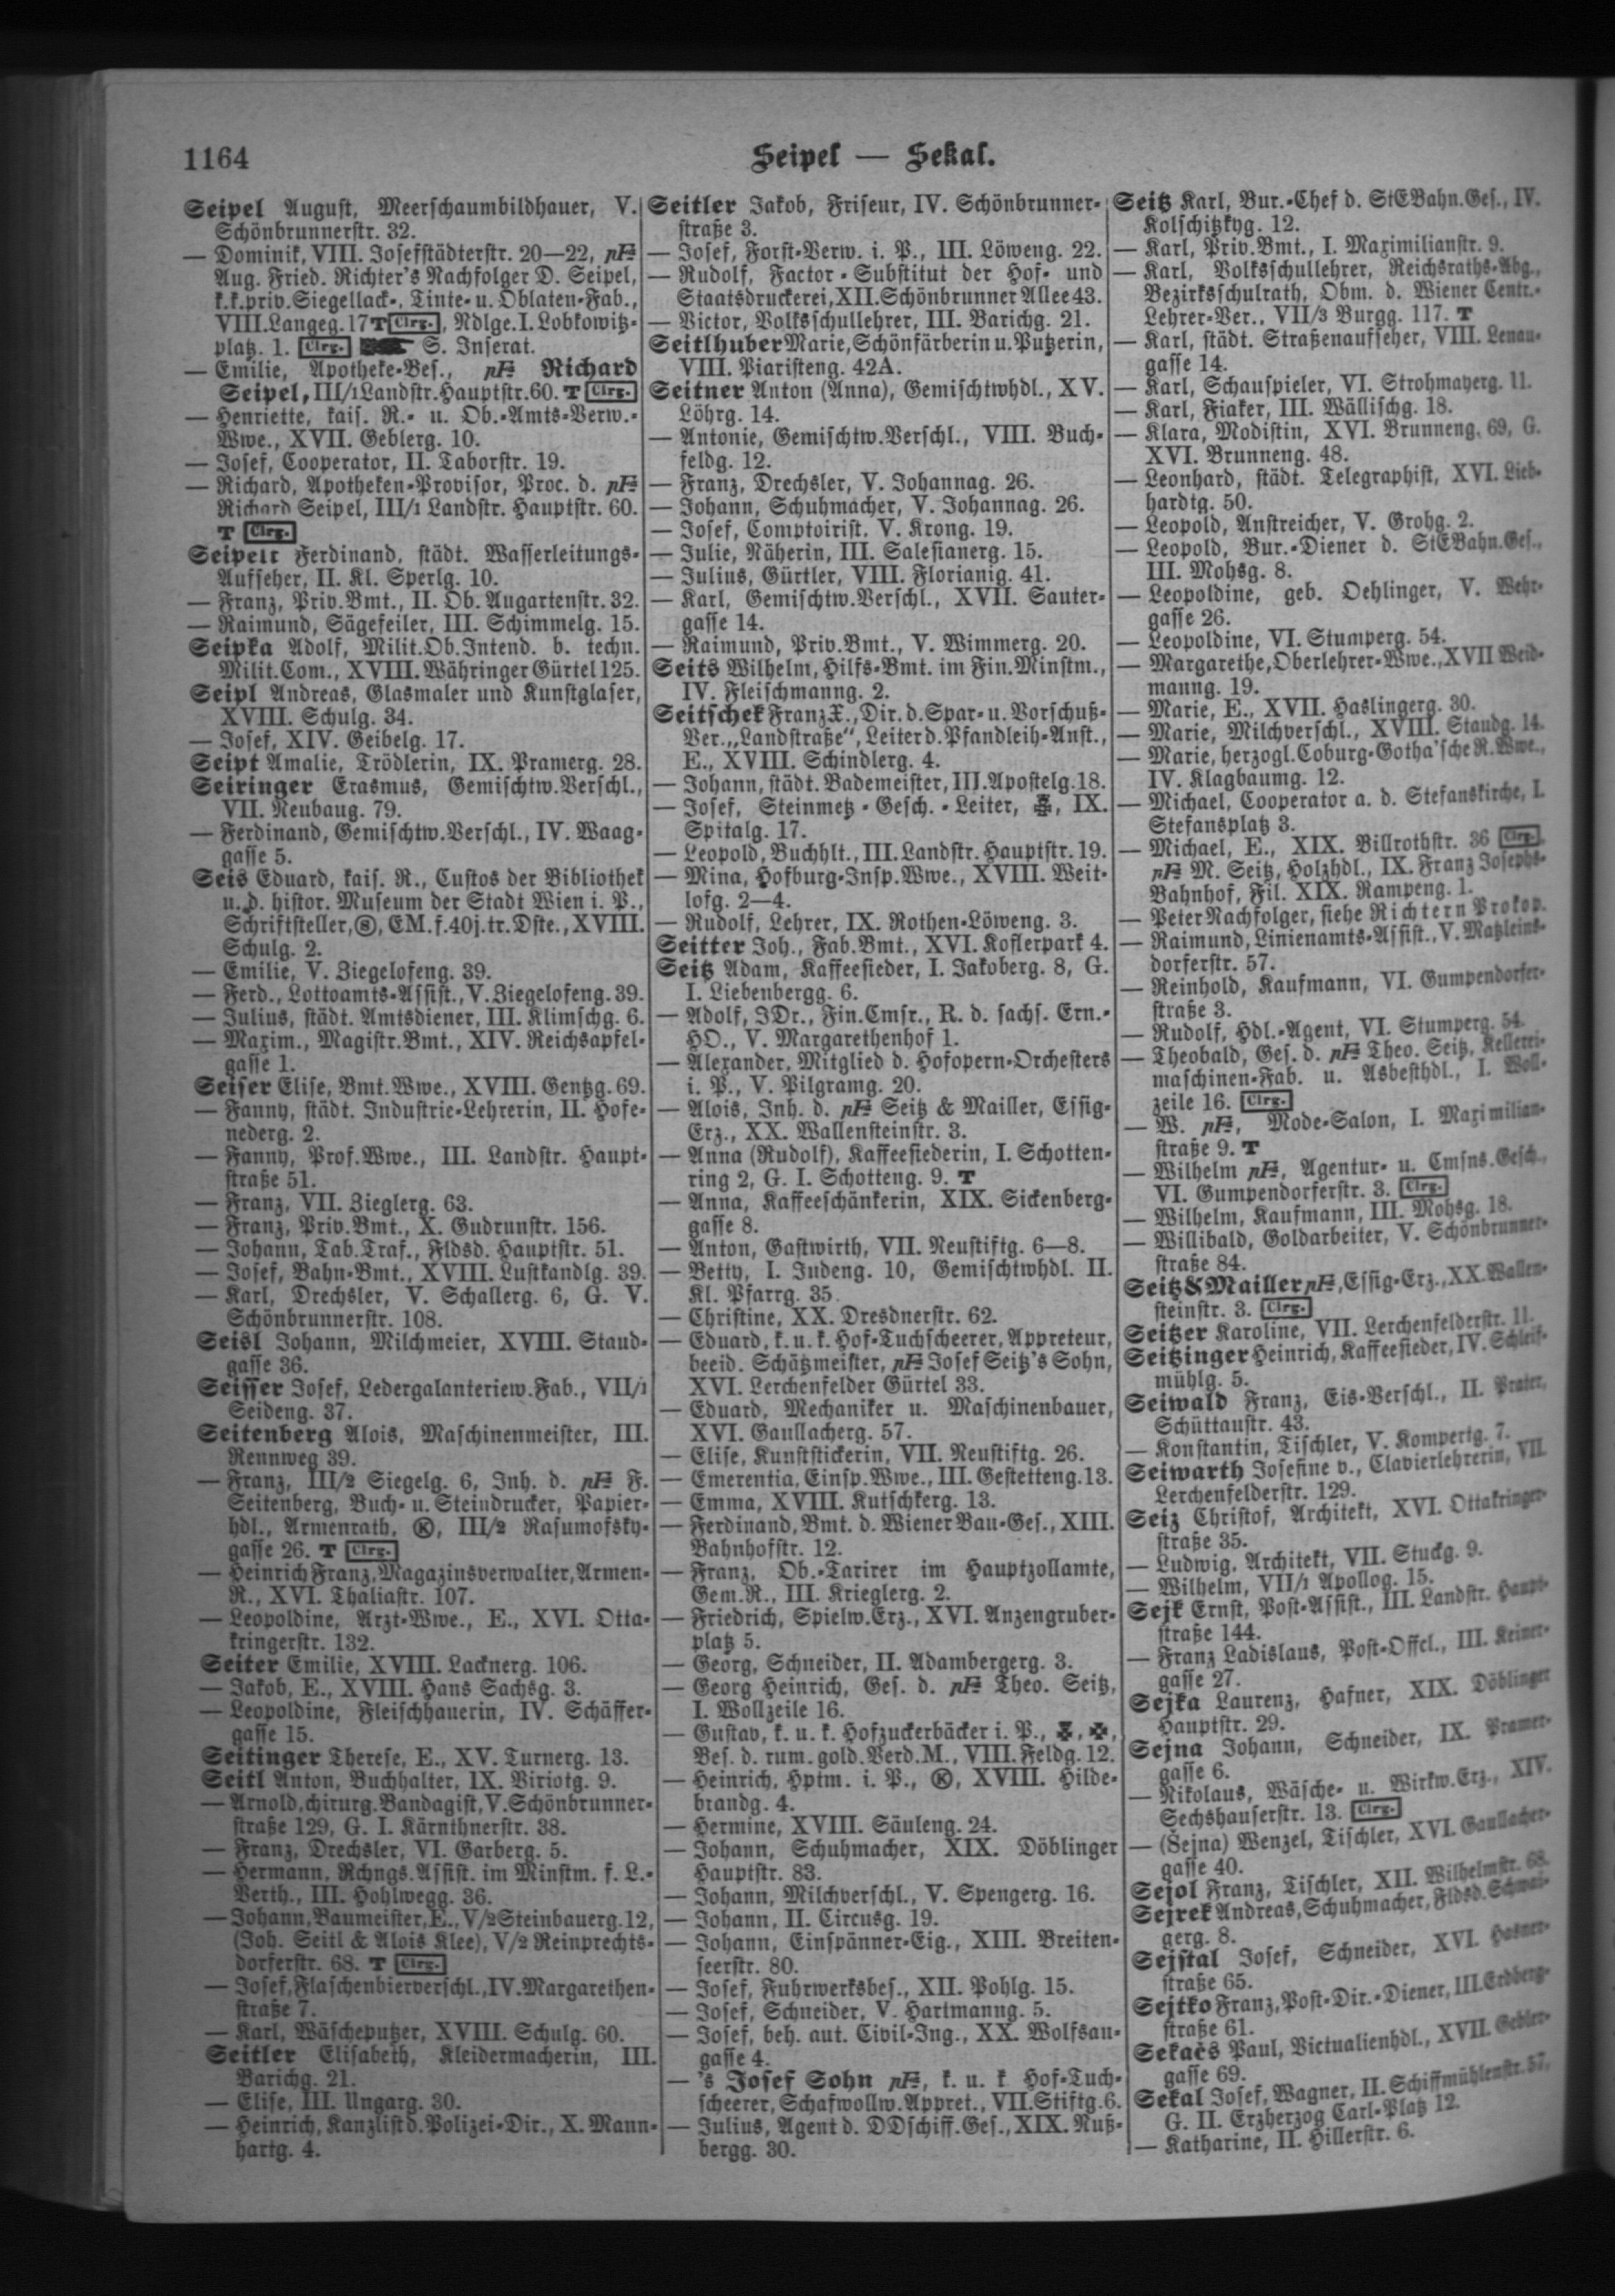 1164
Seipel — Sekal.
Seipel August, Meerschaumbildhauer, V.
Schönbrunnerstr. 32.
— Dominik, VIII. Josefstädterstr. 20—22, pF
Aug. Fried. Richter's Nachfolger D. Seipel,
k.k.priv.Siegellack-, Tinte- u. Oblaten-Fab.,
VIII.Langeg.17 T Clrg., Ndlge.I.Lobkowitz-
platz. 1. Clrg. S. Inserat.
— Emilie, Apotheke-Bes., pF Richard
Seipel, III/1Landstr.Hauptstr.60. T Clrg.
— Henriette, kais. R.- u. Ob.-Amts-Verw.-
Wwe., XVII. Geblerg. 10.
— Josef, Cooperator, II. Taborstr. 19.
— Richard, Apotheken-Provisor, Proc. d. pF
Richard Seipel, III/1 Landstr. Hauptstr. 60.
T Clrg.
Seipelt Ferdinand, städt. Wasserleitungs-
Aufseher, II. Kl. Sperlg. 10.
— Franz, Priv.Bmt., II. Ob. Augartenstr. 32.
— Raimund, Sägefeiler, III. Schimmelg. 15.
Seipka Adolf, Milit.Ob.Intend. b. techn.
Milit.Com., XVIII. Währinger Gürtel 125.
Seipl Andreas, Glasmaler und Kunstglaser,
XVIII. Schulg. 34.
— Josef, XIV. Geibelg. 17.
Seipt Amalie, Trödlerin, IX. Pramerg. 28.
Seiringer Erasmus, Gemischtw.Verschl.,
VII. Neubaug. 79.
— Ferdinand, Gemischtw.Verschl., IV. Waag-
gasse 5.
Seis Eduard, kais. R., Custos der Bibliothek
u. d. histor. Museum der Stadt Wien i. P.,
Schriftsteller, Ⓢ, EM.f.40j.tr.Dste., XVIII.
Schulg. 2.
— Emilie, V. Ziegelofeng. 39.
— Ferd., Lottoamts-Assist., V.Ziegelofeng. 39.
— Julius, städt. Amtsdiener, III. Klimschg. 6.
— Maxim., Magistr.Bmt., XIV. Reichsapfel-
gasse 1.
Seiser Elise, Bmt.Wwe., XVIII. Gentzg. 69.
— Fanny, städt. Industrie-Lehrerin, II. Hofe-
nederg. 2.
— Fanny, Prof.Wwe., III. Landstr. Haupt-
straße 51.
— Franz, VII. Zieglerg. 63.
— Franz, Priv.Bmt., X. Gudrunstr. 156.
— Johann, Tab.Traf., Fldsd. Hauptstr. 51.
— Josef, Bahn-Bmt., XVIII. Lustkandlg. 39.
— Karl, Drechsler, V. Schallerg. 6, G. V.
Schönbrunnerstr. 108.
Seisl Johann, Milchmeier, XVIII. Staud-
gasse 36.
Seisser Josef, Ledergalanteriew.Fab., VII/1
Seideng. 37.
Seitenberg Alois, Maschinenmeister, III.
Rennweg 39.
— Franz, III/2 Siegelg. 6, Inh. d. pF F.
Seitenberg, Buch- u. Steindrucker, Papier-
hdl., Armenrath, Ⓚ, III/2 Rasumofsky-
gasse 26. T Clrg.
— Heinrich Franz, Magazinsverwalter, Armen-
R., XVI. Thaliastr. 107.
— Leopoldine, Arzt-Wwe., E., XVI. Otta-
kringerstr. 132.
Seiter Emilie, XVIII. Lacknerg. 106.
— Jakob, E., XVIII. Hans Sachsg. 3.
— Leopoldine, Fleischhauerin, IV. Schäffer-
gasse 15.
Seitinger Therese, E., XV. Turnerg. 13.
Seitl Anton, Buchhalter, IX. Viriotg. 9.
— Arnold, chirurg.Bandagist, V.Schönbrunner-
straße 129, G. I. Kärnthnerstr. 38.
— Franz, Drechsler, VI. Garberg. 5.
— Hermann, Rchngs.Assist. im Minstm. f. L.-
Verth., III. Hohlwegg. 36.
— Johann, Baumeister, E., V/2Steinbauerg.12,
(Joh. Seitl & Alois Klee), V/2 Reinprechts-
dorferstr. 68. T Clrg.
— Josef, Flaschenbierverschl., IV.Margarethen-
straße 7.
— Karl, Wäscheputzer, XVIII. Schulg. 60.
Seitler Elisabeth, Kleidermacherin, III.
Barichg. 21.
— Elise, III. Ungarg. 30.
— Heinrich, Kanzlist d. Polizei-Dir., X. Mann-
hartg. 4.
Seitler Jakob, Friseur, IV. Schönbrunner-
straße 3.
— Josef, Forst-Verw. i. P., III. Löweng. 22.
— Rudolf, Factor-Substitut der Hof- und
Staatsdruckerei, XII.Schönbrunner Allee 43.
— Victor, Volksschullehrer, III. Barichg. 21.
Seitlhuber Marie, Schönfärberin u. Putzerin,
VIII. Piaristeng. 42A.
Seitner Anton (Anna), Gemischtwhdl., XV.
Löhrg. 14.
— Antonie, Gemischtw.Verschl., VIII. Buch-
feldg. 12.
— Franz, Drechsler, V. Johannag. 26.
— Johann, Schuhmacher, V. Johannag. 26.
— Josef, Comptoirist. V. Krong. 19.
— Julie, Näherin, III. Salesianerg. 15.
— Julius, Gürtler, VIII. Florianig. 41.
— Karl, Gemischtw.Verschl., XVII. Sauter-
gasse 14.
— Raimund, Priv.Bmt., V. Wimmerg. 20.
Seits Wilhelm, Hilfs-Bmt. im Fin.Minstm.,
IV. Fleischmanng. 2.
Seitschek Franz X., Dir. d. Spar- u. Vorschuß-
Ver. „Landstraße", Leiter d. Pfandleih-Anst.,
E., XVIII. Schindlerg. 4.
— Johann, städt. Bademeister, III.Apostelg.18.
— Josef, Steinmetz-Gesch.-Leiter, IX.
Spitalg. 17.
— Leopold, Buchhlt., III.Landstr. Hauptstr. 19.
— Mina, Hofburg-Insp.Wwe., XVIII. Weit-
lofg. 2—4.
— Rudolf, Lehrer, IX. Rothen-Löweng. 3.
Seitter Joh., Fab.Bmt., XVI. Koflerpark 4.
Seitz Adam, Kaffeesieder, I. Jakoberg. 8, G.
I. Liebenbergg. 6.
— Adolf, JDr., Fin.Cmsr., R. d. sachs. Ern.-
HO., V. Margarethenhof 1.
— Alexander, Mitglied d. Hofopern-Orchesters
i. P., V. Pilgramg. 20.
— Alois, Inh. d. pF Seitz & Mailler, Essig-
Erz., XX. Wallensteinstr. 3.
— Anna (Rudolf), Kaffeesiederin, I. Schotten-
ring 2, G. I. Schotteng. 9. T
— Anna, Kaffeeschänkerin, XIX. Sickenberg-
gasse 8.
— Anton, Gastwirth, VII. Neustiftg. 6—8.
— Betty, I. Judeng. 10, Gemischtwhdl. II.
Kl. Pfarrg. 35.
— Christine, XX. Dresdnerstr. 62.
— Eduard, k. u. k. Hof-Tuchscheerer, Appreteur,
beeid. Schätzmeister, pF Josef Seitz's Sohn,
XVI. Lerchenfelder Gürtel 33.
— Eduard, Mechaniker u. Maschinenbauer,
XVI. Gaullacherg. 57.
— Elise, Kunststickerin, VII. Neustiftg. 26.
— Emerentia, Einsp.Wwe., III. Gestetteng.13.
— Emma, XVIII. Kutschkerg. 13.
— Ferdinand, Bmt. d. Wiener Bau-Ges., XIII.
Bahnhofstr. 12.
— Franz, Ob.-Tarirer im Hauptzollamte,
Gem.R., III. Krieglerg. 2.
— Friedrich, Spielw.Erz., XVI. Anzengruber-
platz 5.
— Georg, Schneider, II. Adambergerg. 3.
— Georg Heinrich, Ges. d. pF Theo. Seitz,
I. Wollzeile 16.
— Gustav, k. u. k. Hofzuckerbäcker i. P.,
Bes. d. rum. gold. Verd.M., VIII. Feldg. 12.
— Heinrich, Hptm. i. P., Ⓚ, XVIII. Hilde-
brandg. 4.
— Hermine, XVIII. Säuleng. 24.
— Johann, Schuhmacher, XIX. Döblinger
Hauptstr. 83.
— Johann, Milchverschl., V. Spengerg. 16.
— Johann, II. Circusg. 19.
— Johann, Einspänner-Eig., XIII. Breiten-
seerstr. 80.
— Josef, Fuhrwerksbes., XII. Pohlg. 15.
— Josef, Schneider, V. Hartmanng. 5.
— Josef, beh. aut. Civil-Ing., XX. Wolfsau-
gasse 4.
— 's Josef Sohn pF, k. u. k. Hof-Tuch-
scheerer, Schafwollw.Appret., VII.Stiftg.6.
— Julius, Agent d. DDschiff.Ges., XIX. Nuß-
bergg. 30.
Seitz Karl, Bur.-Chef d. StEBahn.Ges., IV.
Kolschitzkyg. 12.
— Karl, Priv.Bmt., I. Maximilianstr. 9.
— Karl, Volksschullehrer, Reichsraths-Abg.,
Bezirksschulrath, Obm. d. Wiener Centr.-
Lehrer-Ver., VII/3 Burgg. 117. T
— Karl, städt. Straßenaufseher, VIII. Lenau-
gasse 14.
— Karl, Schauspieler, VI. Strohmayerg. 11.
— Karl, Fiaker, III. Wällischg. 18.
— Klara, Modistin, XVI. Brunneng. 69, G.
XVI. Brunneng. 48.
— Leonhard, städt. Telegraphist, XVI. Lieb-
hardtg. 50.
— Leopold, Anstreicher, V. Grohg. 2.
— Leopold, Bur.-Diener d. StEBahn.Ges.,
III. Mohsg. 8.
— Leopoldine, geb. Oehlinger, V. Wehr-
gasse 26.
— Leopoldine, VI. Stumperg. 54.
— Margarethe, Oberlehrer-Wwe., XVII Weid-
manng. 19.
— Marie, E., XVII. Haslingerg. 30.
— Marie, Milchverschl., XVIII. Staudg. 14.
— Marie, herzogl.Coburg-Gotha'sche R.Wwe.,
IV. Klagbaumg. 12.
— Michael, Cooperator a. d. Stefanskirche, I.
Stefansplatz 3.
— Michael, E., XIX. Billrothstr. 36 Clrg.,
pF M. Seitz, Holzhdl., IX. Franz Josephs-
Bahnhof, Fil. XIX. Rampeng. 1.
— Peter Nachfolger, siehe Richtern Prokop.
— Raimund, Linienamts-Assist., V. Matzleins-
dorferstr. 57.
— Reinhold, Kaufmann, VI. Gumpendorfer-
straße 3.
— Rudolf, Hdl.-Agent, VI. Stumperg. 54.
— Theobald, Ges. d. pF Theo. Seitz, Kellerei-
maschinen-Fab. u. Asbesthdl., I. Woll-
zeile 16. Clrg.
— W. pF, Mode-Salon, I. Maximilian-
straße 9. T
— Wilhelm pF, Agentur- u. Cmsns.Gesch.,
VI. Gumpendorferstr. 3. Clrg.
— Wilhelm, Kaufmann, III. Mohsg. 18.
— Willibald, Goldarbeiter, V. Schönbrunner-
straße 84.
Seitz & Mailler pF, Essig-Erz., XX.Wallen-
steinstr. 3. Clrg.
Seitzer Karoline, VII. Lerchenfelderstr. 11.
Seitzinger Heinrich, Kaffeesieder, IV. Schleif-
mühlg. 5.
Seiwald Franz, Eis-Verschl., II. Prater,
Schüttaustr. 43.
— Konstantin, Tischler, V. Kompertg. 7.
Seiwarth Josefine v., Clavierlehrerin, VII.
Lerchenfelderstr. 129.
Seiz Christof, Architekt, XVI. Ottakringer-
straße 35.
— Ludwig, Architekt, VII. Stuckg. 9.
— Wilhelm, VII/1 Apollog. 15.
Sejk Ernst, Post-Assist., III. Landstr. Haupt-
straße 144.
— Franz Ladislaus, Post-Offcl., III. Keiner-
gasse 27.
Sejka Laurenz, Hafner, XIX. Döblinger
Hauptstr. 29.
Sejna Johann, Schneider, IX. Pramer-
gasse 6.
— Nikolaus, Wäsche- u. Wirkw.Erz., XIV.
Sechshauserstr. 13. Clrg.
— (Šejna) Wenzel, Tischler, XVI. Gaullacher-
gasse 40.
Sejol Franz, Tischler, XII. Wilhelmstr. 68.
Sejrek Andreas, Schuhmacher, Fldsd. Schwai-
gerg. 8.
Sejstal Josef, Schneider, XVI. Hasner-
straße 65.
Sejtko Franz, Post-Dir.-Diener, III.Erdberg-
straße 61.
Sekačs Paul, Victualienhdl., XVII. Gebler-
gasse 69.
Sekal Josef, Wagner, II. Schiffmühlenstr. 57,
G. II. Erzherzog Carl-Platz 12.
— Katharine, II. Hillerstr. 6.